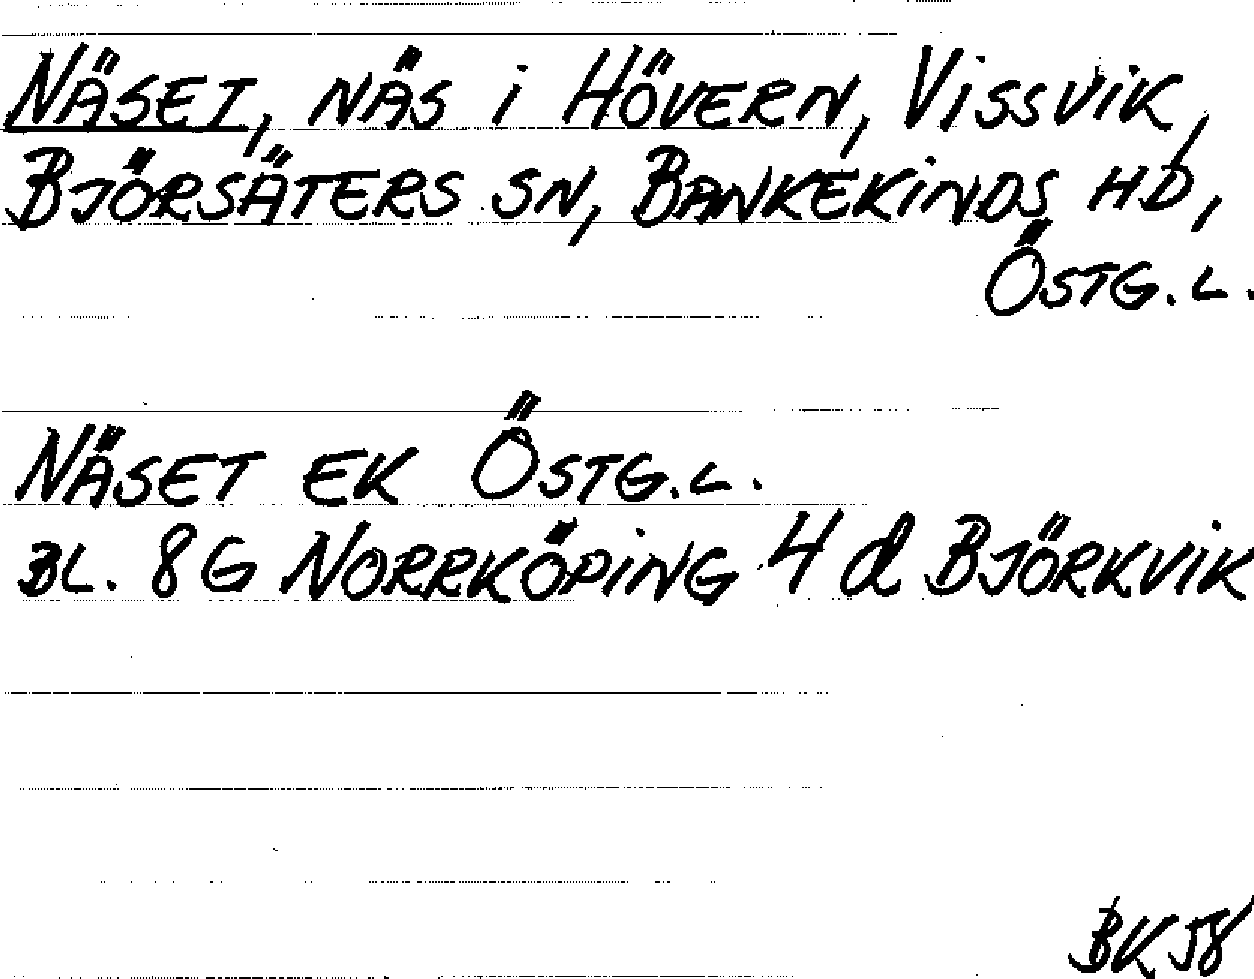 NÄSET, NÄS i HÖVERN, VISSVIK,
BJÖRSÄTERS SN, BANKEKINDS HD,
ÖSTG.L.
NÄSET EK ÖSTG.L.
BL. 8G NORRKÖPING 4d BJÖRKVIK
BK 58